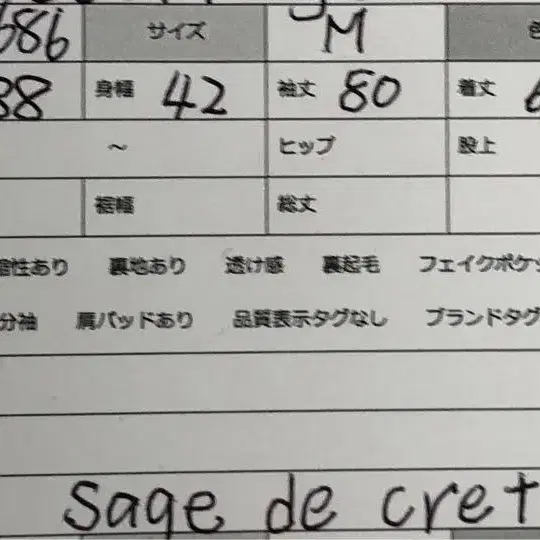 686 サイズ M
38 身幅 42 袖丈 80 着丈
~ ヒップ 股上
裾幅 総丈
性あり 裏地あり 透け感 裏起毛 フェイクポケッ
分袖 肩パッドあり 品質表示タグなし ブランドタグ
sage de cret